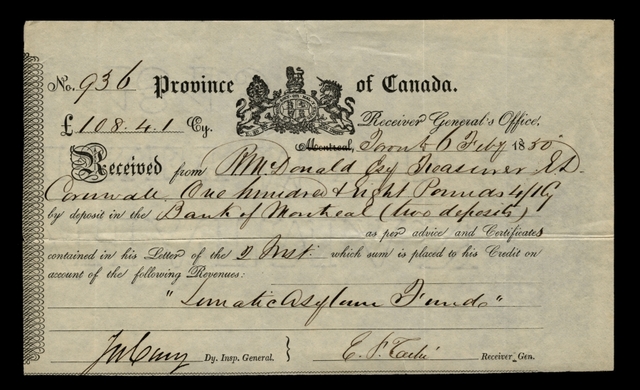 No. 936 Province of Canada.
£108.4.1 Cy. Receiver General's Office.
Montreal, Toronto 6 Feby 1850
Received from McDonald Esq Treasurer E.D.
Cornwall. One hundred & eight Pounds 4/1 Cy
by deposit in the Bank of Montreal (two deposits)
as per advice and Certificates
contained in his Letter of the 2 Inst: which sum is placed to his Credit on
account of the following Revenues:
"Lunatic Asylum Funds"
Jos Cary Dy. Insp. General. } E. P. Taché Receiver Gen.